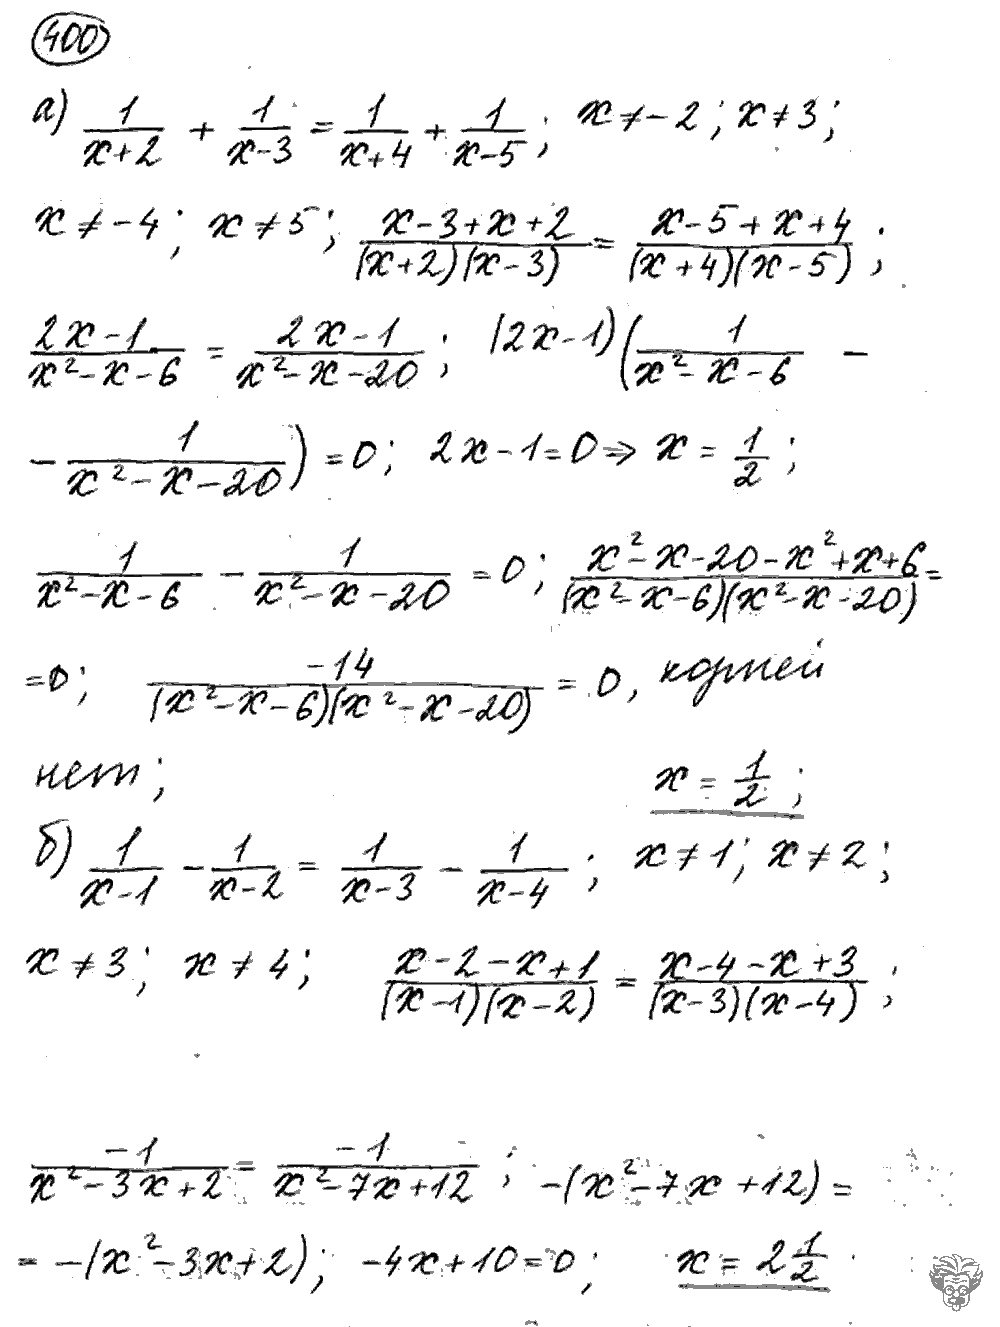 400
а) 1/(x+2) + 1/(x-3) = 1/(x+4) + 1/(x-5); x ≠ -2; x ≠ 3;
x ≠ -4; x ≠ 5; (x-3+x+2)/((x+2)(x-3)) = (x-5+x+4)/((x+4)(x-5));
(2x-1)/(x²-x-6) = (2x-1)/(x²-x-20); (2x-1)(1/(x²-x-6) -
- 1/(x²-x-20)) = 0; 2x-1=0 => x = 1/2;
1/(x²-x-6) - 1/(x²-x-20) = 0; (x²-x-20-x²+x+6)/((x²-x-6)(x²-x-20)) =
=0; -14/((x²-x-6)(x²-x-20)) = 0, корней
нет; x = 1/2;
б) 1/(x-1) - 1/(x-2) = 1/(x-3) - 1/(x-4); x ≠ 1; x ≠ 2;
x ≠ 3; x ≠ 4; (x-2-x+1)/((x-1)(x-2)) = (x-4-x+3)/((x-3)(x-4));
-1/(x²-3x+2) = -1/(x²-7x+12); -(x²-7x+12) =
= -(x²-3x+2); -4x+10=0; x = 2 1/2